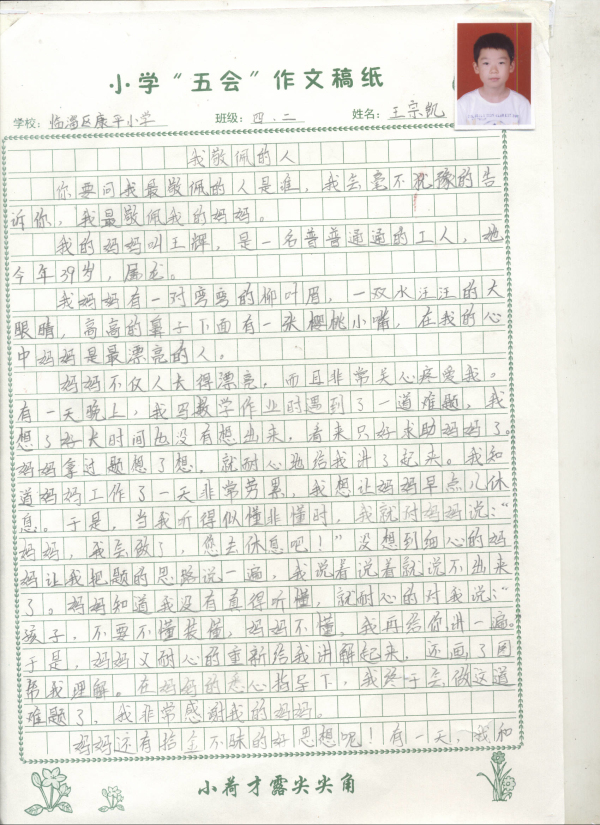 小学“五会”作文稿纸
学校：临淄区康平小学 班级：四．二 姓名：王宗凯
我敬佩的人
你要问我最敬佩的人是谁，我会毫不犹豫的告
诉你，我最敬佩我的妈妈。
我的妈妈叫王辉，是一名普普通通的工人，她
今年39岁，属龙。
我妈妈有一对弯弯的柳叶眉，一双水汪汪的大
眼睛，高高的鼻子下面有一张樱桃小嘴，在我的心
中妈妈是最漂亮的人。
妈妈不仅人长得漂亮，而且非常关心疼爱我。
有一天晚上，我写数学作业时遇到了一道难题，我
想了好大时间也没有想出来，看来只好求助妈妈了。
妈妈拿过题想了想，就耐心地给我讲了起来。我知
道妈妈工作了一天非常劳累，我想让妈妈早点儿休
息。于是，当我听得似懂非懂时，我就对妈妈说：“
妈妈，我会做了，您去休息吧！”没想到细心的妈
妈让我把题的思路说一遍，我说着说着就说不出来
了。妈妈知道我没有真得听懂，就耐心的对我说：“
孩子，不要不懂装懂，妈妈不懂，我再给你讲一遍。
于是，妈妈又耐心的重新给我讲解起来，还画了图
帮我理解。在妈妈的悉心指导下，我终于会做这道
难题了，我非常感谢我的妈妈。
妈妈还有拾金不昧的好思想呢！有一天，我和
小荷才露尖尖角